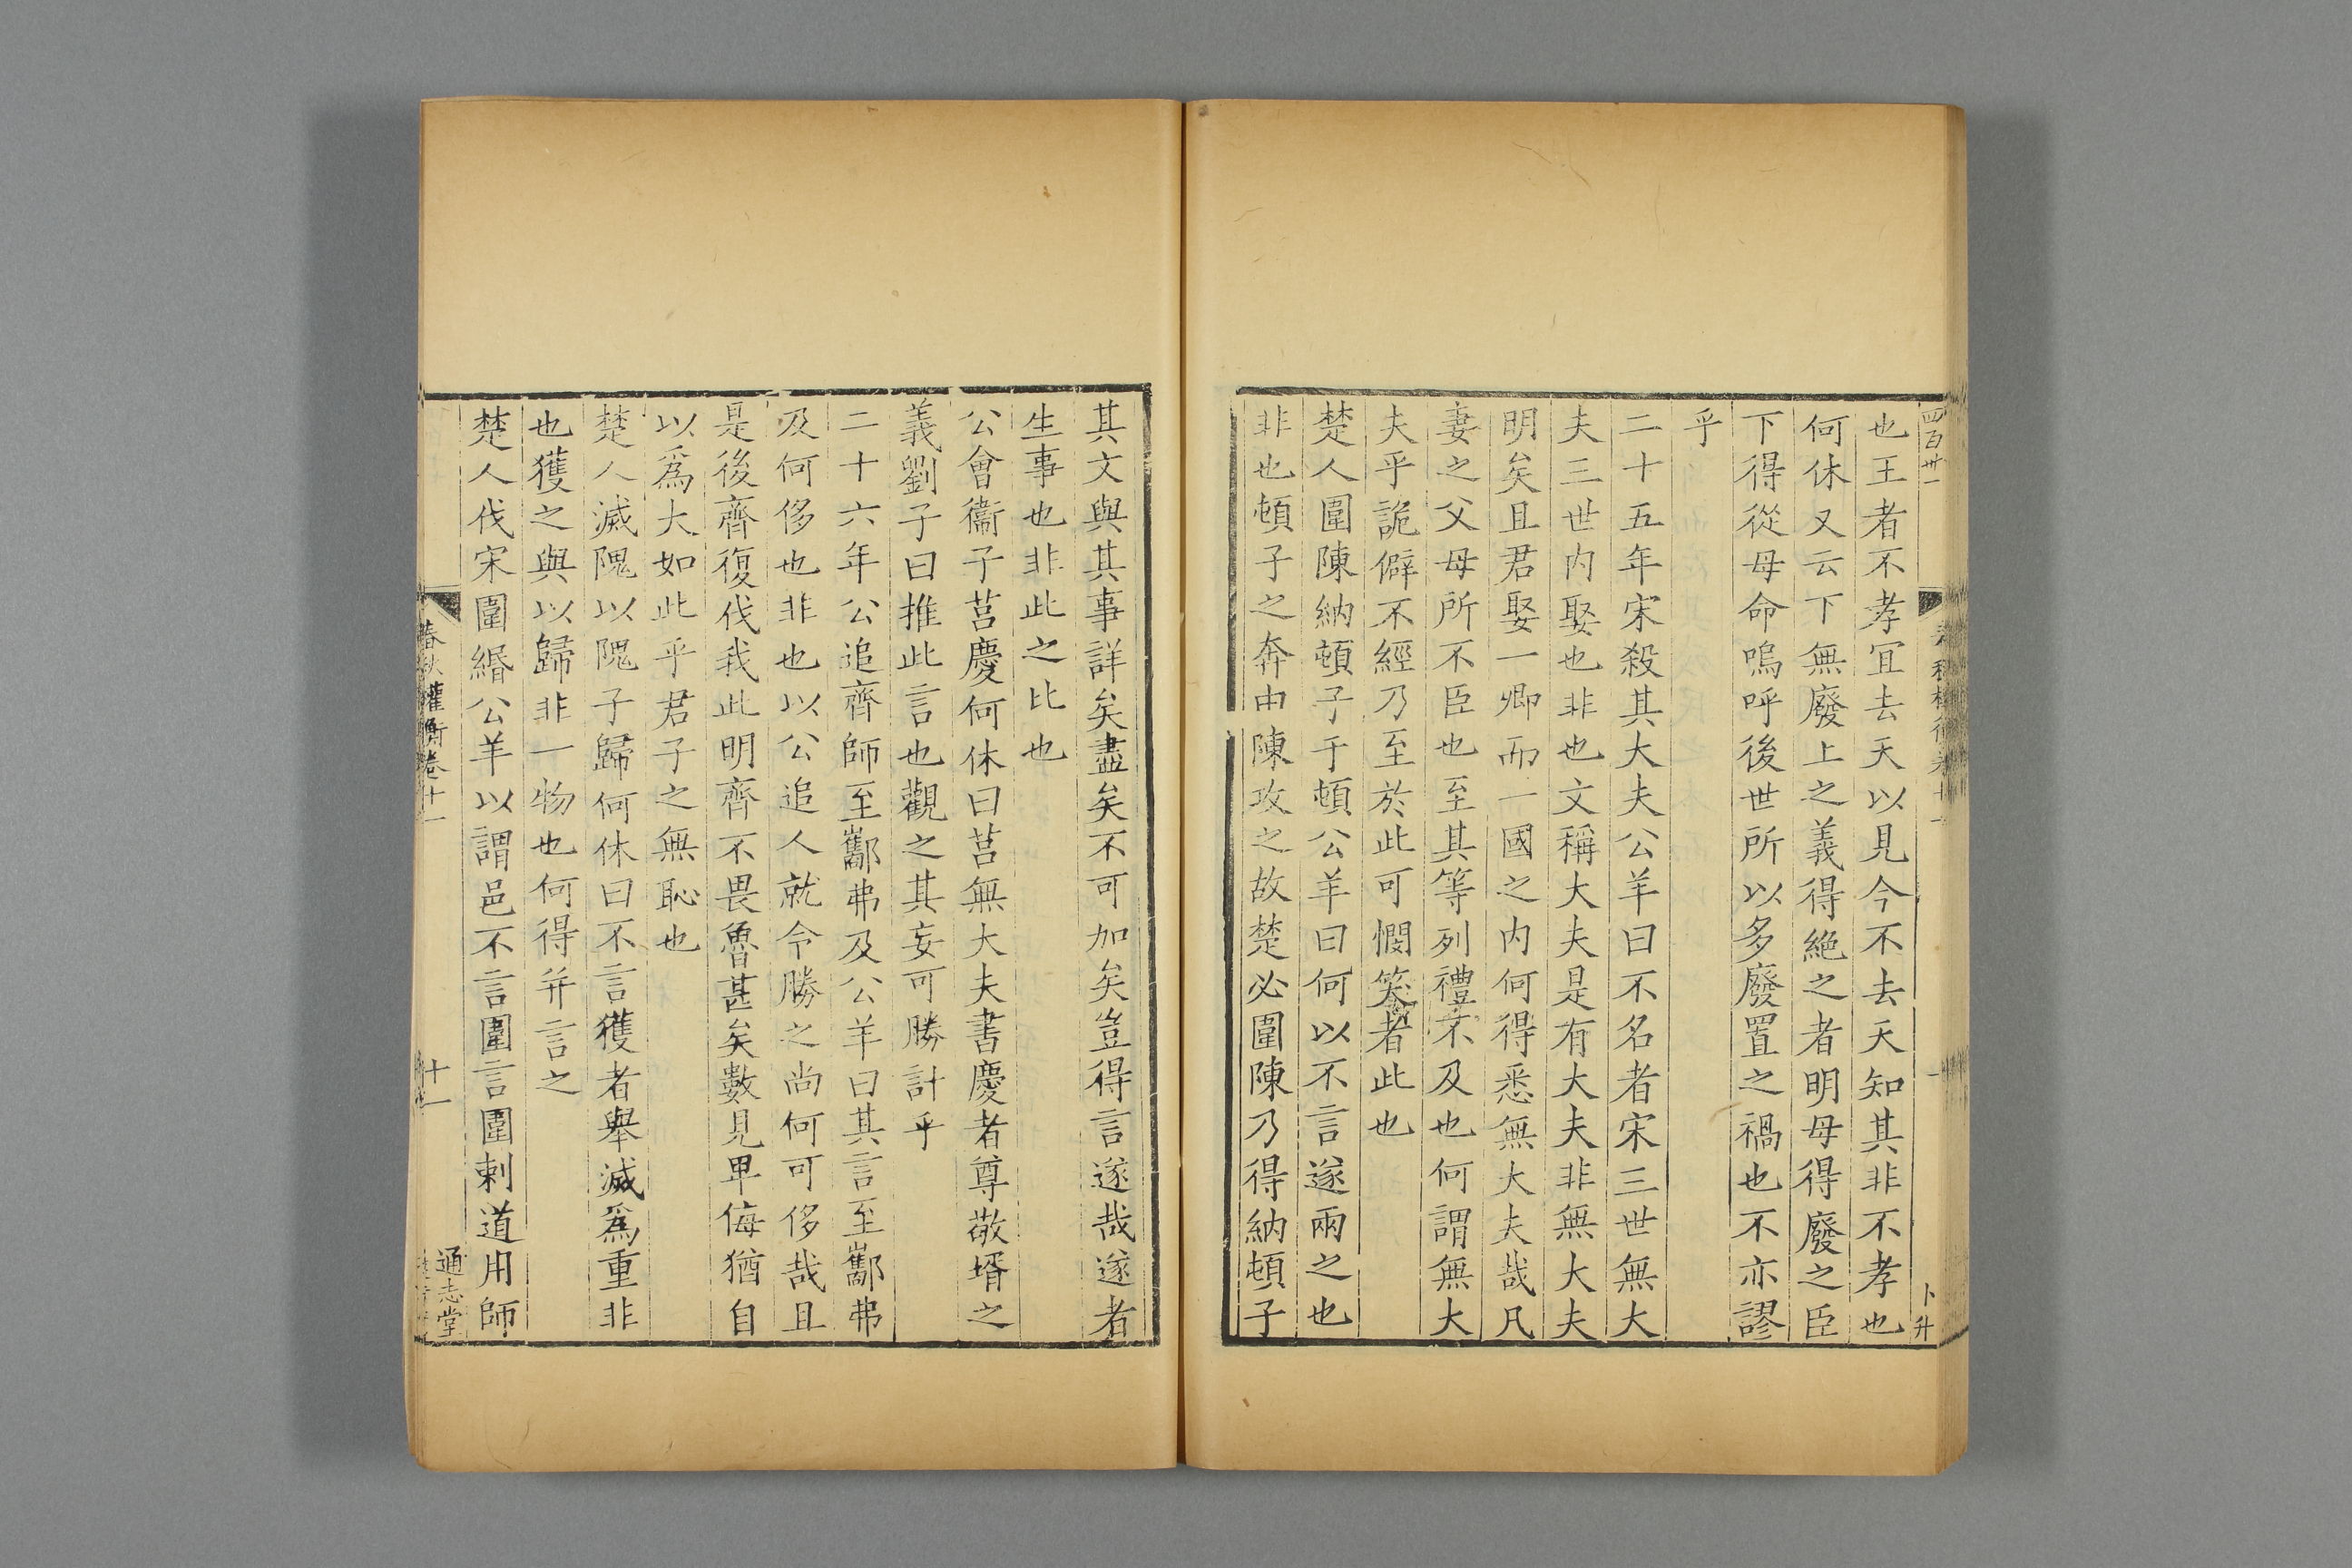 四百卅一
卜升
也王者不孝宜去天以見今不去天知其非不孝也
何休又云下無廢上之義得絶之者明母得廢之臣
下得從母命嗚呼後世所以多廢置之禍也不亦謬
乎
二十五年宋殺其大夫公羊曰不名者宋三世無大
夫三世内娶也非也文稱大夫是有大夫非無大夫
明矣且君娶一卿而一國之内何得悉無大夫哉凡
妻之父母所不臣也至其等列禮亦不及也何謂無大
夫乎詭僻不經乃至於此可憫笑者此也
楚人圍陳納頓子于頓公羊曰何以不言遂兩之也
非也頓子之奔由陳攻之故楚必圍陳乃得納頓子
其文與其事詳矣盡矣不可加矣豈得言遂哉遂者
生事也非此之比也
公會衞子莒慶何休曰莒無大夫書慶者尊敬壻之
義劉子曰推此言也觀之其妄可勝計乎
二十六年公追齊師至酅弗及公羊曰其言至酅弗
及何侈也非也以公追人就令勝之尚何可侈哉且
是後齊復伐我此明齊不畏魯甚矣數見卑侮猶自
以爲大如此乎君子之無恥也
楚人滅隗以隗子歸何休曰不言獲者舉滅爲重非
也獲之與以歸非一物也何得并言之
楚人伐宋圍緡公羊以謂邑不言圍言圍刺道用師
春秋權衡卷十一
十一
通志堂